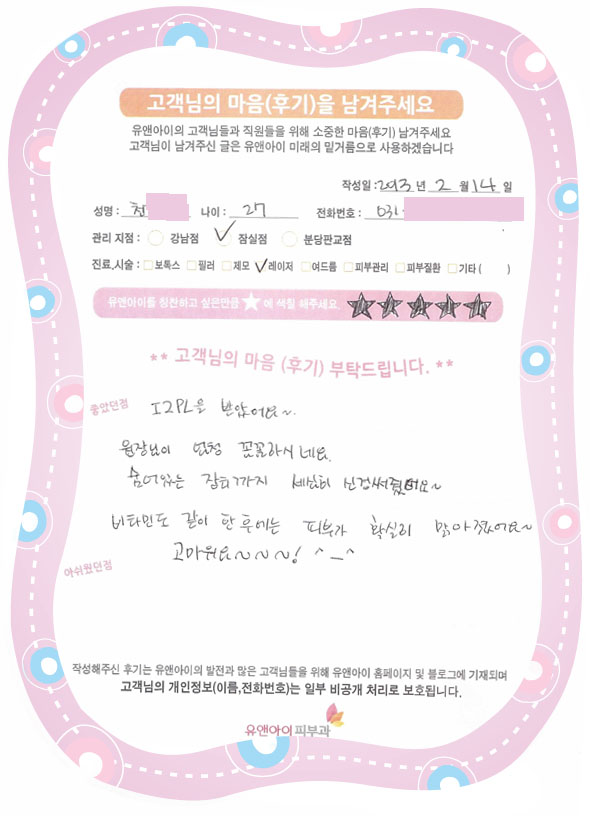 고객님의 마음(후기)을 남겨주세요
유앤아이의 고객님들과 직원들을 위해 소중한 마음(후기) 남겨주세요
고객님이 남겨주신 글은 유앤아이 미래의 밑거름으로 사용하겠습니다
작성일 : 2013 년 2 월 14 일
성명 : 천 나이 : 27 전화번호 : 031
관리 지점 : 강남점 잠실점 분당판교점
진료,시술 : 보톡스 필러 제모 레이저 여드름 피부관리 피부질환 기타 ( )
유앤아이를 칭찬하고 싶은만큼 ★에 색칠 해주세요. ★★★★★
** 고객님의 마음 (후기) 부탁드립니다. **
좋았던점 I2PL을 받았어요~.
원장님이 엄청 꼼꼼하시네요.
숨어있는 잡티까지 세심히 신경써줬어요~
비타민도 같이 한 후에는 피부가 확실히 맑아졌어요~
고마워요~~~! ^_^
아쉬웠던점
작성해주신 후기는 유앤아이의 발전과 많은 고객님들을 위해 유앤아이 홈페이지 및 블로그에 기재되며
고객님의 개인정보(이름,전화번호)는 일부 비공개 처리로 보호됩니다.
유앤아이피부과